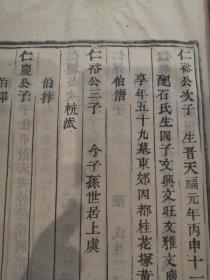 仁裕公次子 生晋天福元年丙申十一
配石氏生四子文興文旺文雅文慶
享年五十九墓東郊四都桂花塚黄
伯潛
仁裕公三子 今子孫世居上虞
伯抃 杭派
仁慶公子
伯